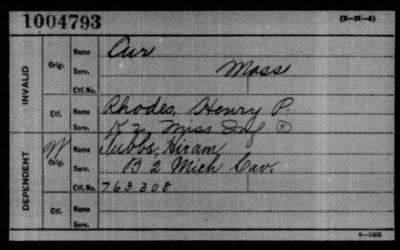 1004793
(3-27-4)
INVALID
Orig.
Name
Cur
Serv.
Mass
Ctf. No.
Ctf.
Name
Rhodes, Henry P.
Serv.
K 2 Miss Inf
DEPENDENT
W
Orig.
Name
Tubbs, Hiram
Serv.
B 2 Mich Cav.
Ctf. No.
763308
Ctf.
Name
Serv.